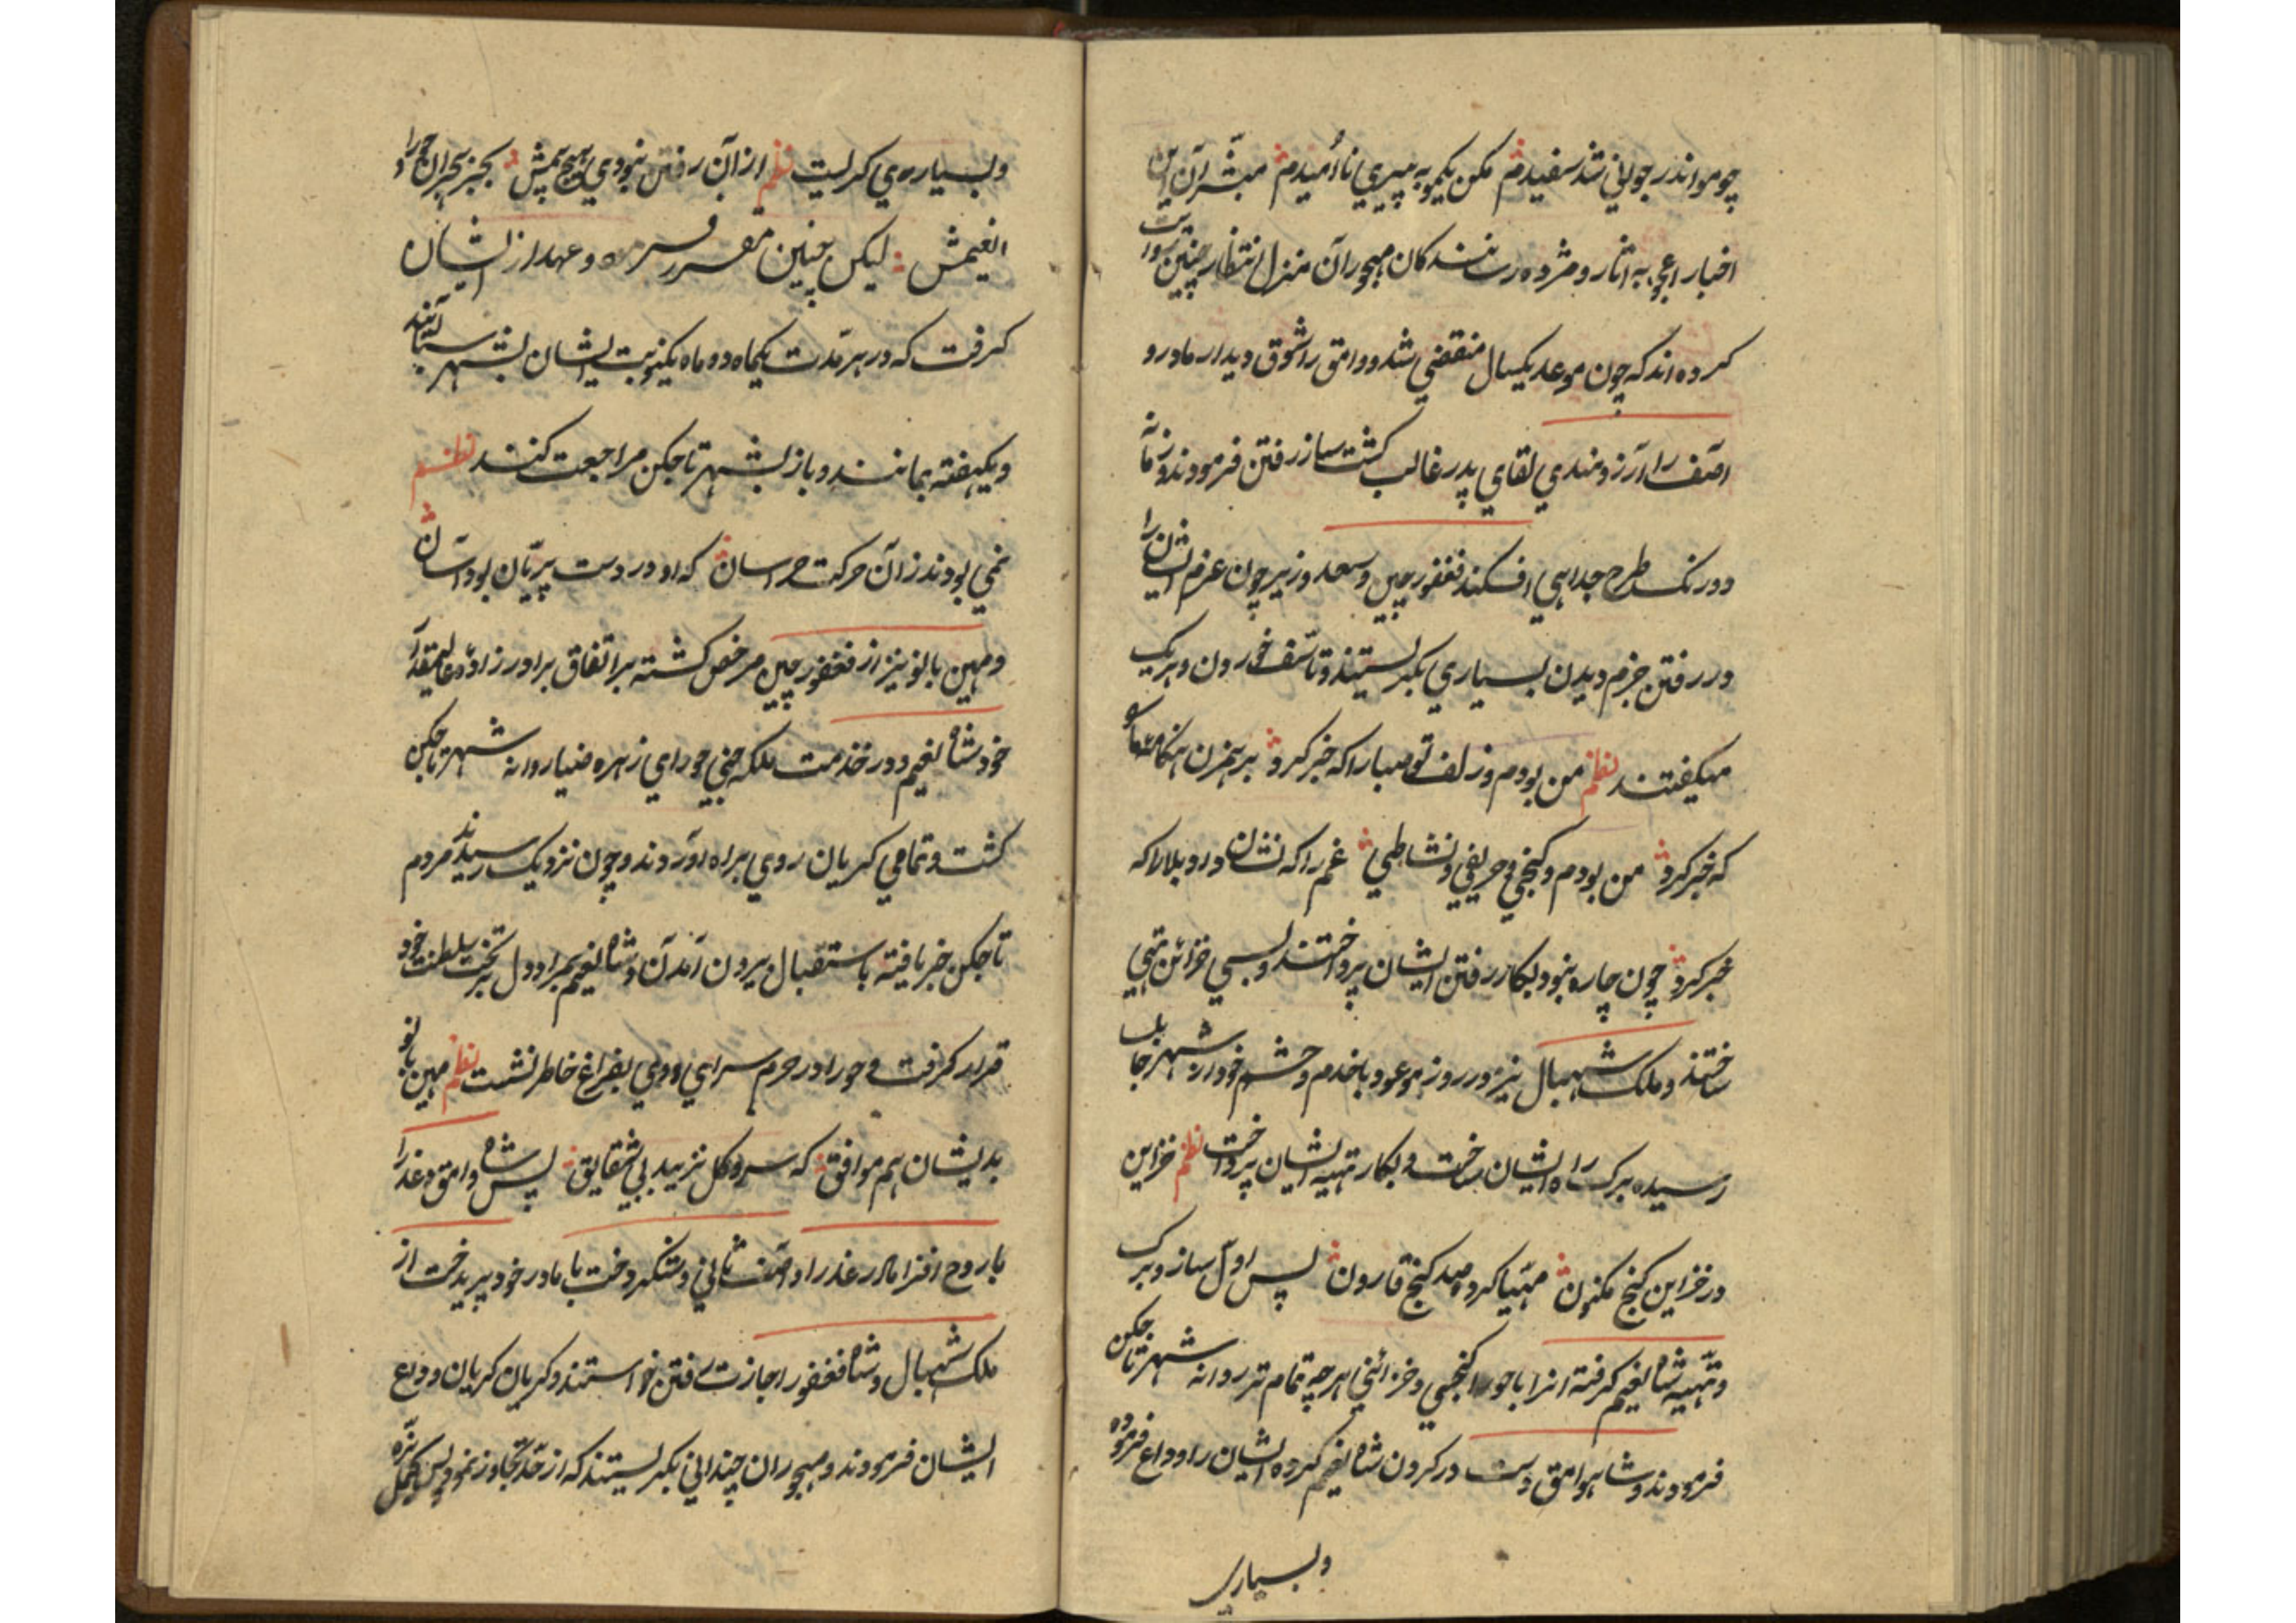 چو مو اندر جوانی شد سفیدم مکن یکمو به پیری ناامیدم مبشران این
اخبار اعجوبه اثار و مژده رسانندکان مهجوران منزل انتظار چنین روایت
کرده اند که چون موعد یکسال منقضی شد و وامق را شوق دیدار مادر و
آصف را آرزومندی لقای پدر غالب کشت ساز رفتن فرمودند و زمانه
دورنک طرح جدایی افکند فغفور چین و سعد وزیر چون عزم ایشان را
در رفتن جزم دیدن بسیاری بکریستند و تاسف خوردن و هریک
میکفتند نظم من بودم و زلف تو صبا را که خبر کرد بر همزن هنکامه
که خبر کرد من بودم و کنجی و حریفی و نشاطی غم را که نشان داد و بلا را که
خبر کرد چون چاره نبود بکار رفتن ایشان پرداختند و بسی خزائن تهی
ساختند و ملک شهبال نیز در روز موعود با خدم و حشم خود از شهر
رسیده برک راه ایشان ساخت و بکار تهیه ایشان پرداخت نظم خزاین
در خزاین کنج مکنون مهیا کرده صد کنج قارون پس اول ساز و برک
و تهیه شاه نعیم کرفته انرا با حورا کنجی و خزائنی هرچه تمام تر روانه شهر تاجکن
فرمودند و شاه وامق دست در کردن شاه نعیم کرده ایشان را وداع فرموده
و بسیاری
و بسیاری کریست نظم از آن رفتن نبودی هیچ بیمش بجز هجران حورا و
نعیمش لیکن چنین مقرر فرموده و عهد از ایشان
کرفت که در هر مدت یکماه دو ماه یکنوبت ایشان بشهر آیند
و یکهفته بمانند و باز بشهر تاجکن مراجعت کنند نظم
نمی بودند زآن حرکت هراسان که او در دست پریان بود آسان
و مهین بانو نیز از فغفور چین مرخص کشته بر اتفاق برادرزاده
خود شاه نعیم و در خدمت ملکه جنی حورای زهره ضیا روانه شهر تاجکن
کشت و تمامی کریان روی براه آوردند و چون نزدیک رسیدند مردم
تاجکن خبر یافته باستقبال بیرون آمدن و شاه نعیم بمراد دل بر تخت سلطنت خود
قرار کرفت و حورا در حرم سرای او وی بفراغ خاطر نشست نظم مهین بانو
بدیشان هم موافق که سرو و کل نزیبد بی شقایق پس شاه وامق و عذرا
با روح افزا مادر عذرا و آصف ثانی و شکردخت با مادر خود پریدخت از
ملک شهبال و شاه فغفور اجازت رفتن خواستند و کریان کریان وداع
ایشان فرمودند و مهجوران چندانی بکریستند که از حد تجاوز نمود پس